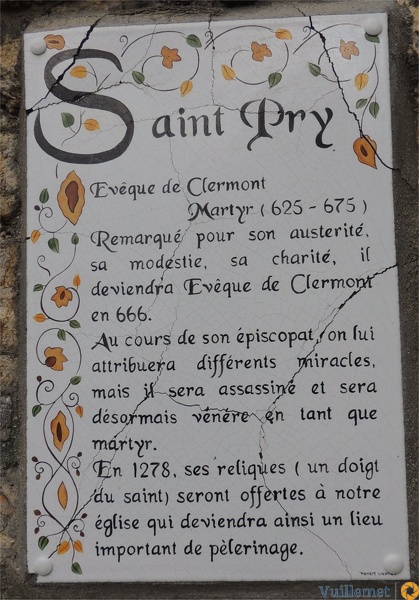 Saint Pry
Evêque de Clermont
Martyr ( 625 - 675 )
Remarqué pour son austerité,
sa modestie, sa charité, il
deviendra Evêque de Clermont
en 666.
Au cours de son épiscopat, on lui
attribuera différents miracles,
mais il sera assassiné et sera
désormais vénéré en tant que
martyr.
En 1278, ses reliques ( un doigt
du saint) seront offertes à notre
église qui deviendra ainsi un lieu
important de pèlerinage.
Vuillamet